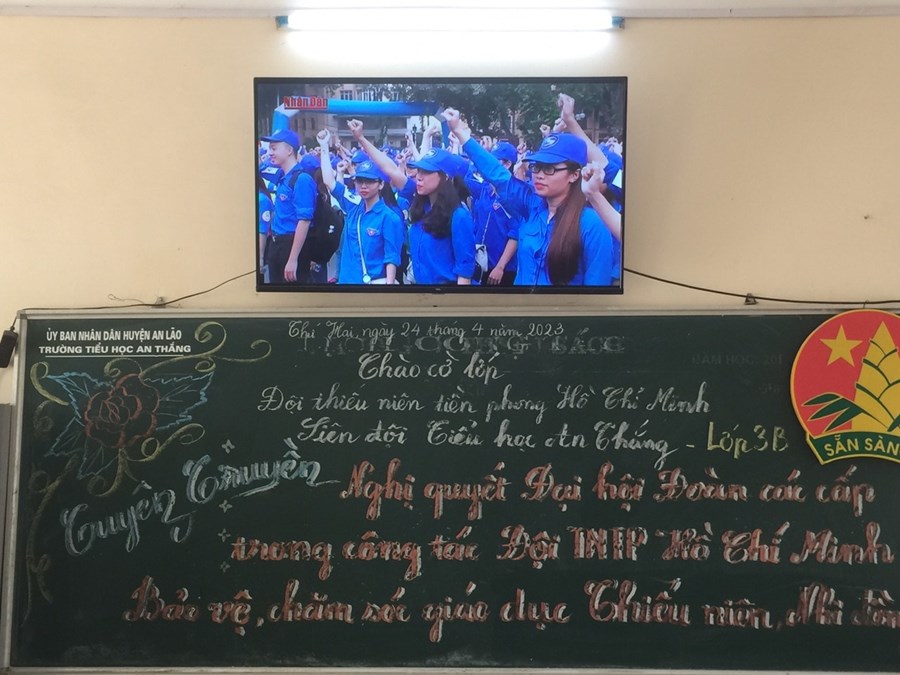 Nhân Dân
ỦY BAN NHÂN DÂN HUYỆN AN LÃO
TRƯỜNG TIỂU HỌC AN THẮNG
Thứ Hai, ngày 24 tháng 4 năm 2023
Chào cờ lớp
Đội thiếu niên tiền phong Hồ Chí Minh
Liên đội Tiểu học An Thắng - Lớp 3B
SẴN SÀN
Tuyên Truyền
Nghị quyết Đại hội Đoàn các cấp
trong công tác Đội TNTP Hồ Chí Minh
Bảo vệ, chăm sóc giáo dục Thiếu niên, Nhi đồn